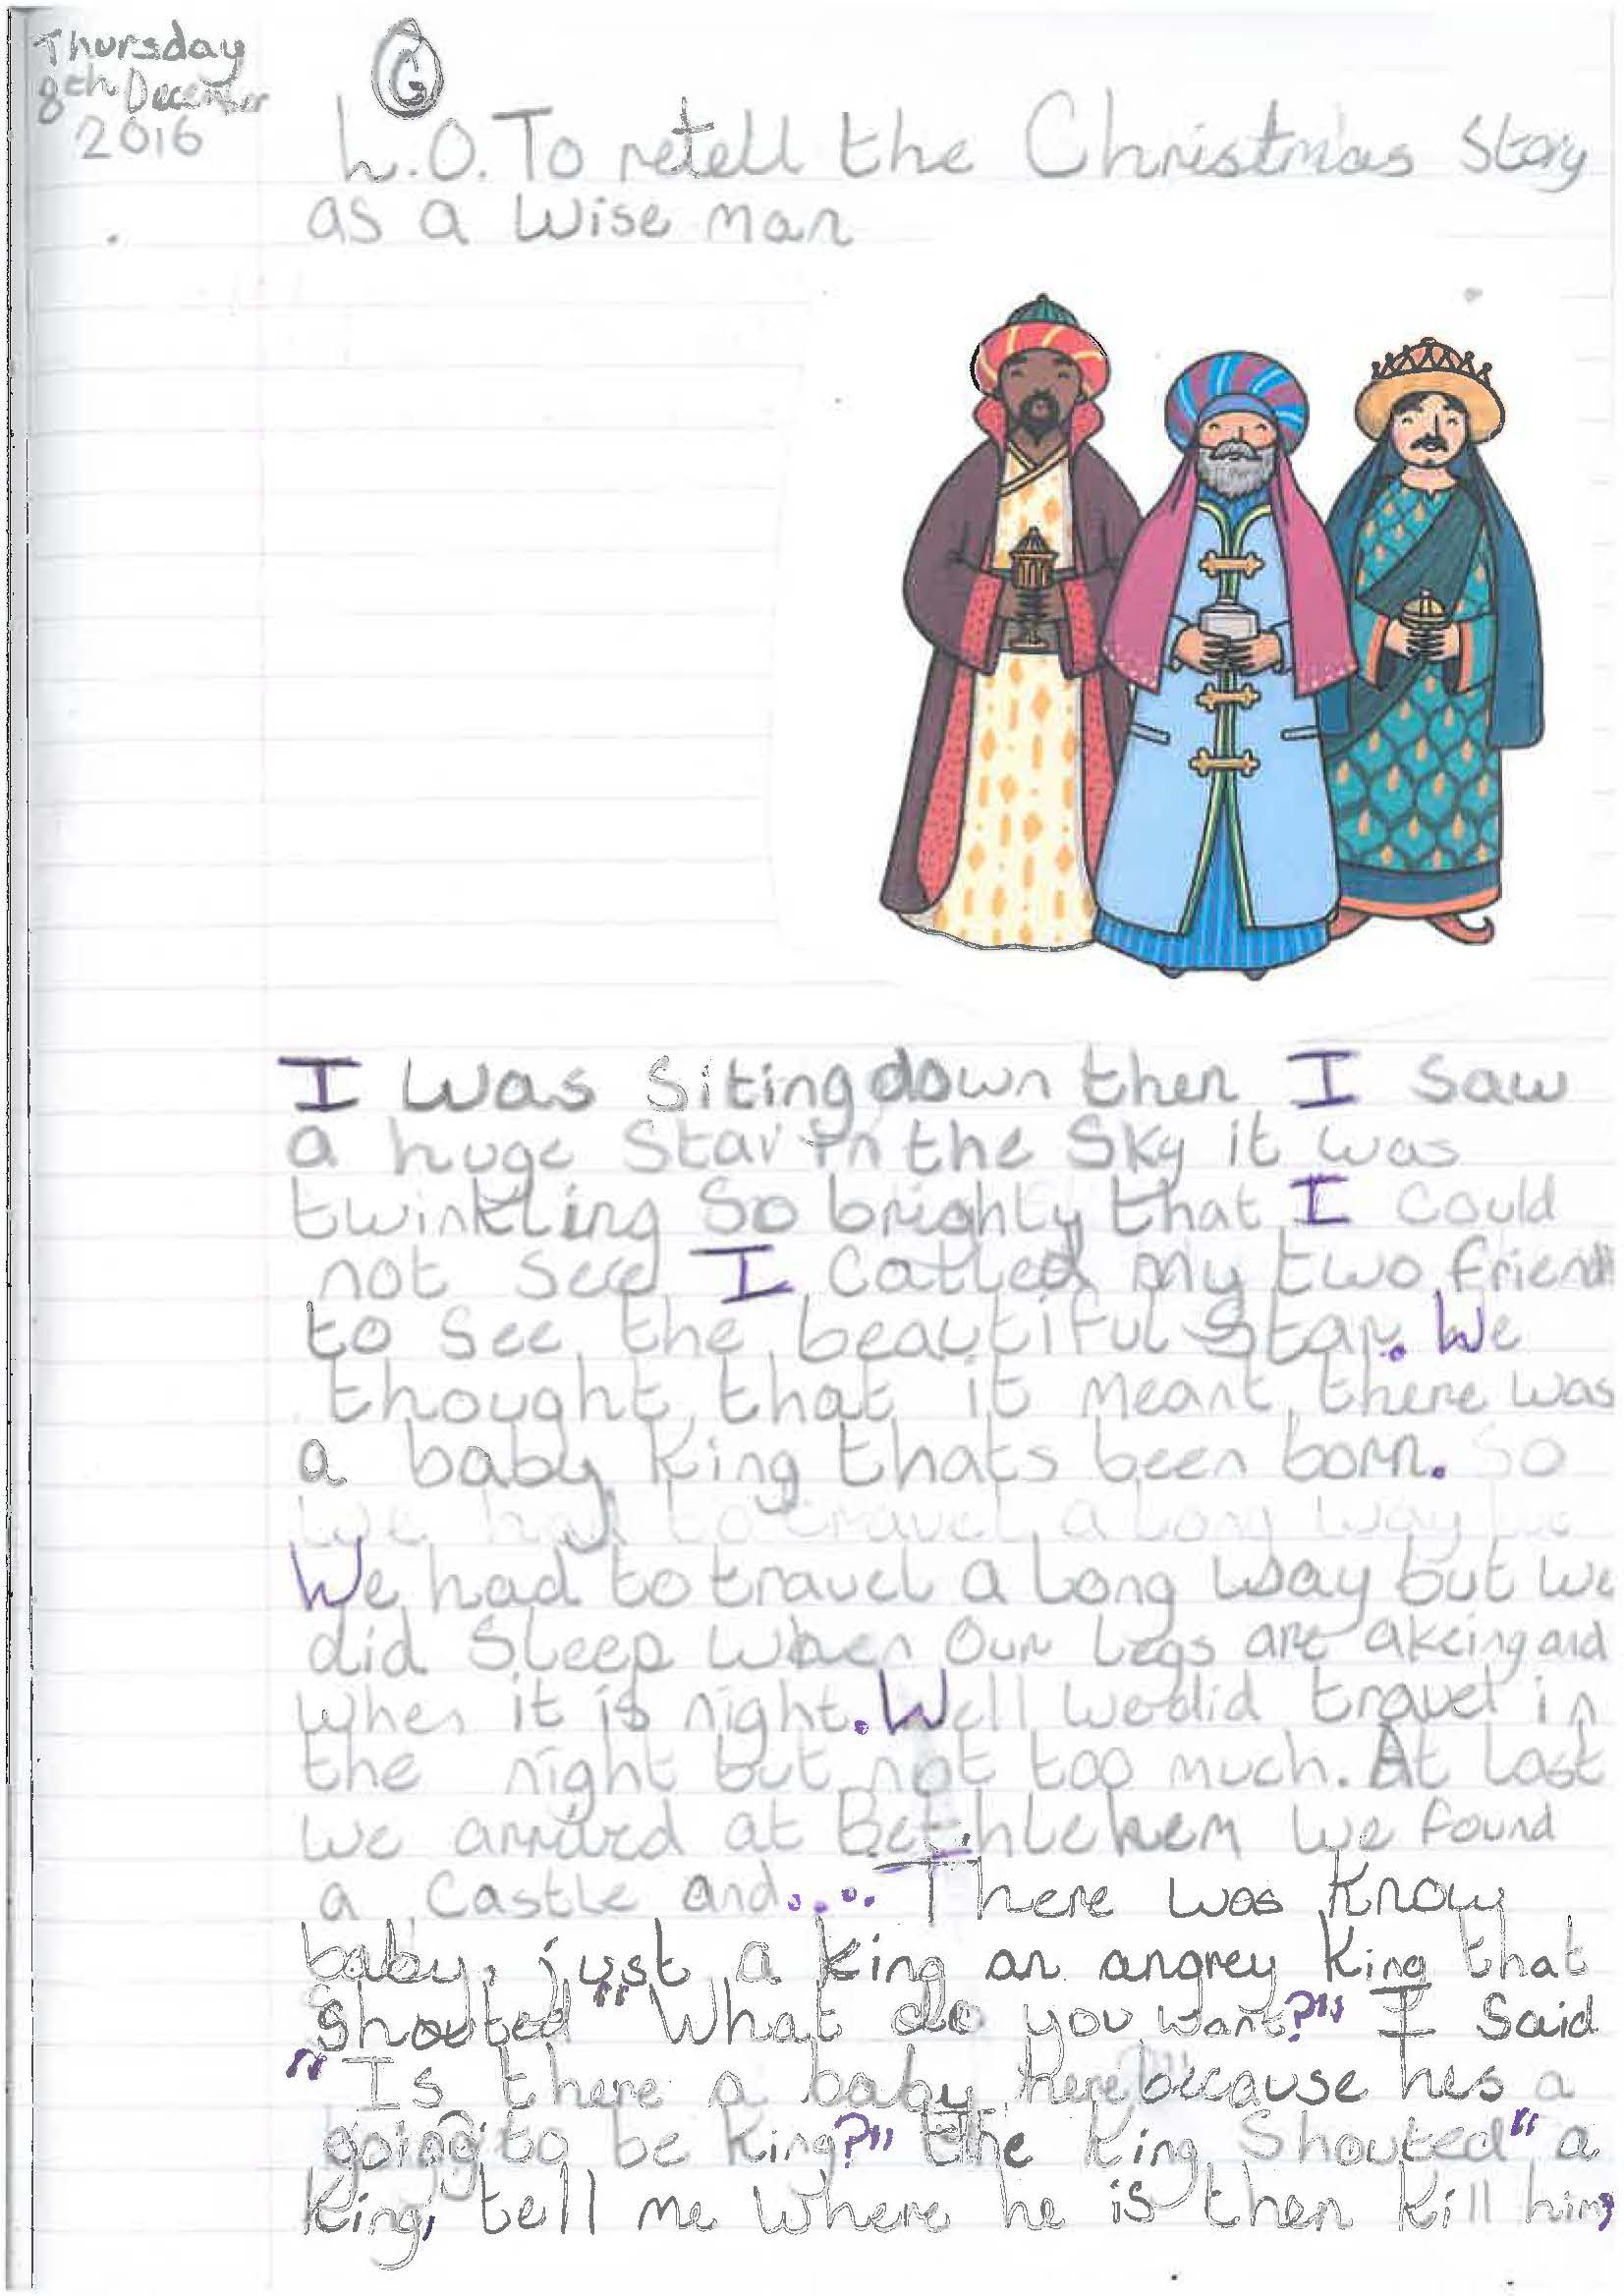 Thursday
8th December
2016
G
L.O. To retell the Christmas Story
as a Wise man
I was siting down then I saw
a huge star in the sky it was
twinkling so brighty that I could
not see I called my two friend
to see the beautiful star. We
thought that it meant there was
a baby king thats been born. So
We had to travel a long way
We had to travel a long way but we
did sleep when our legs are akeing and
when it is night. Well we did travel in
the night but not too much. At last
we arrived at Bethlehem we found
a castle and.... There was know
baby, just a king an angrey king that
shouted "What do you want?" I said
"Is there a baby here because hes a
going to be king?" the king shouted "a
king, tell me where he is then kill him,